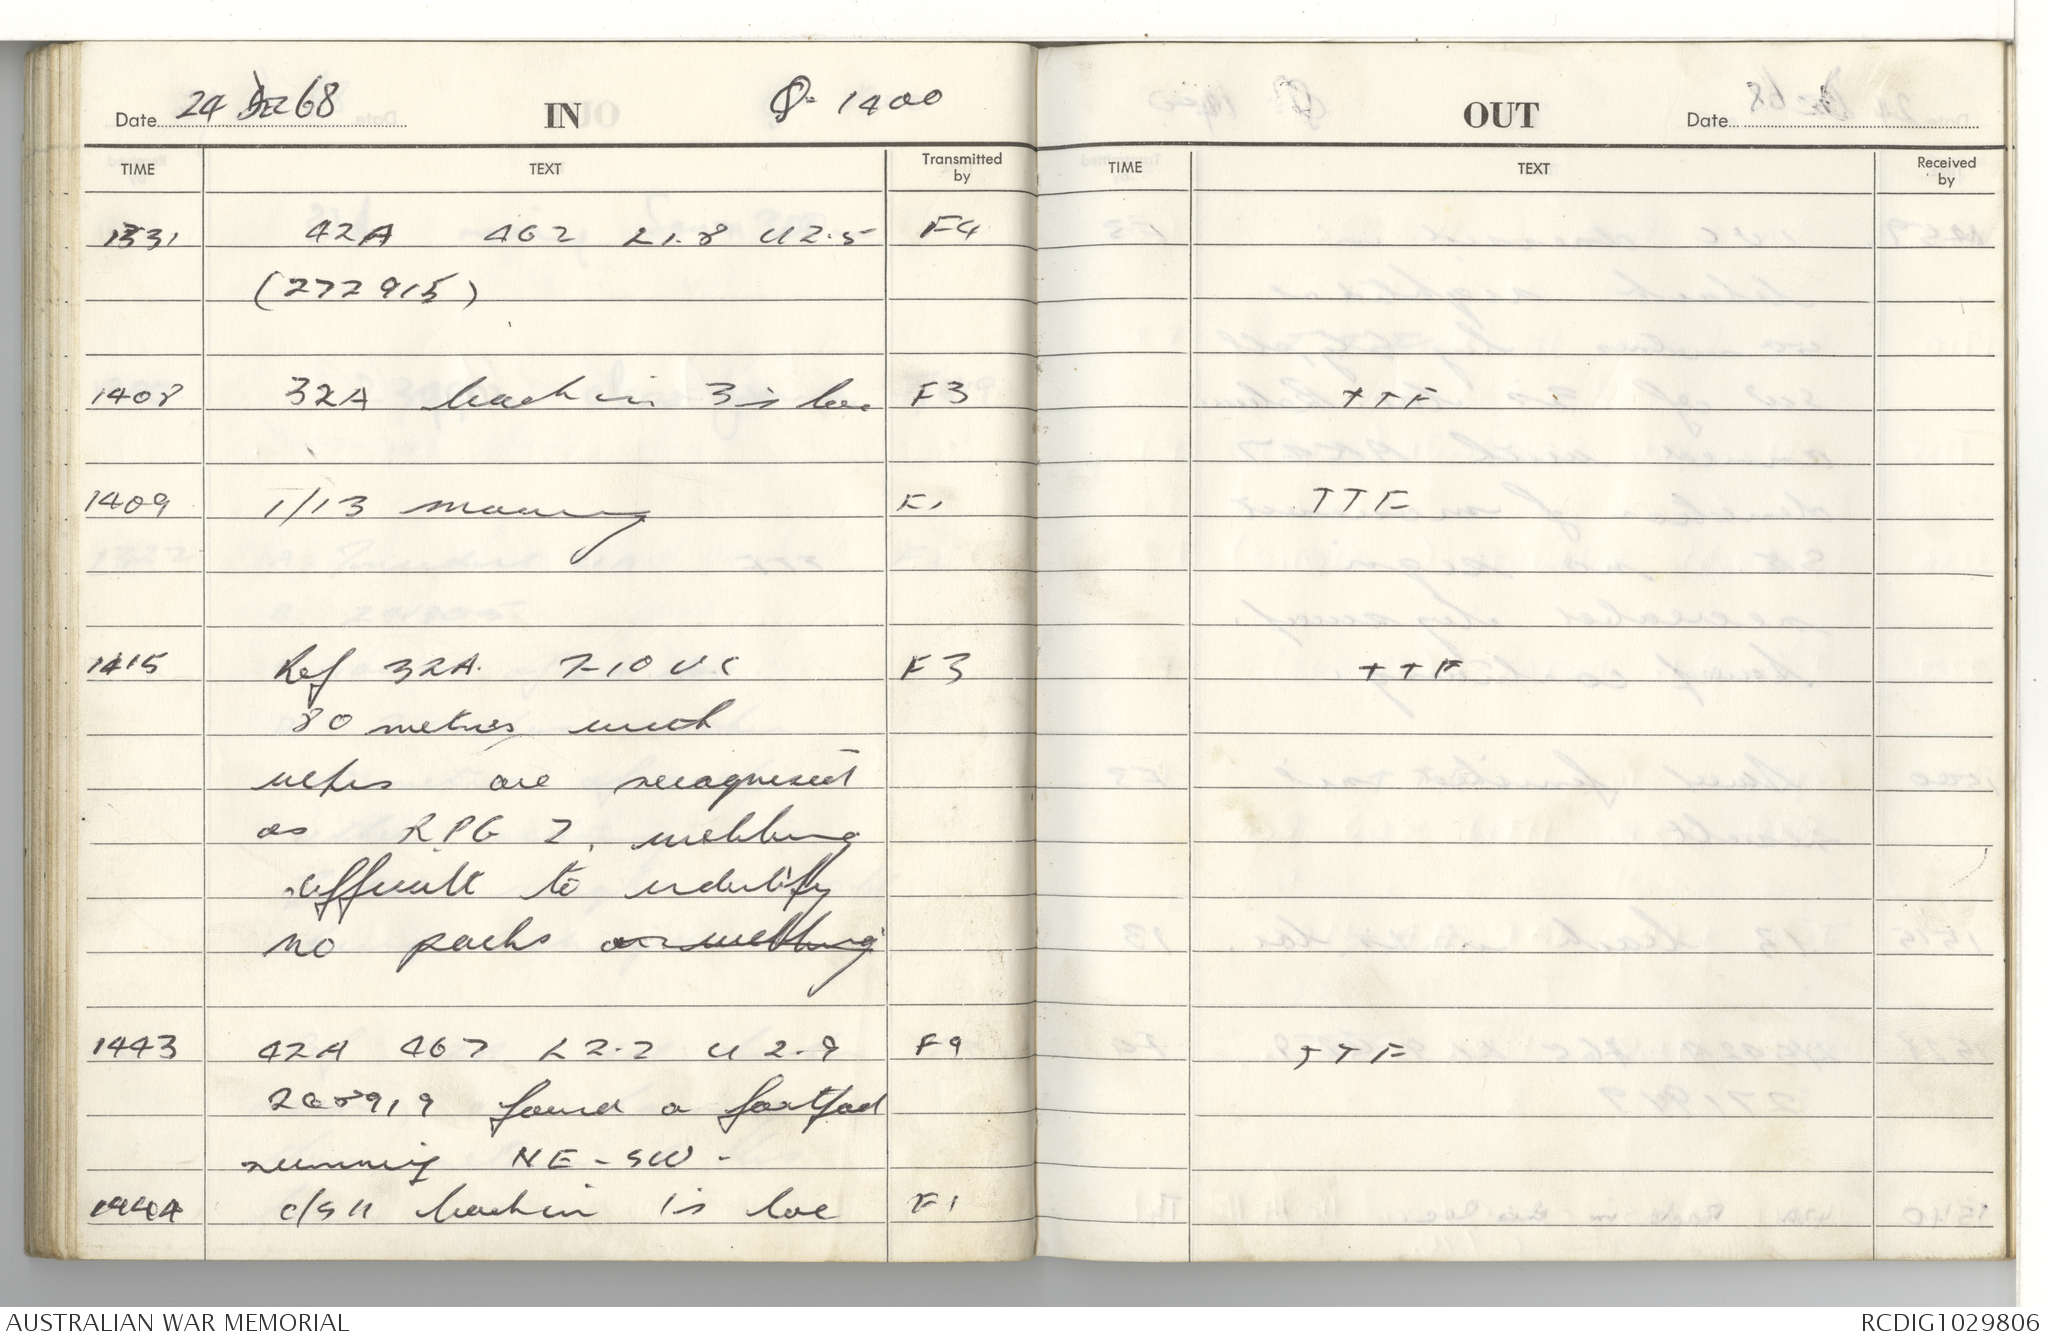 Date 24 Dec 68 IN 1400
TIME TEXT Transmitted by
1331 42A 462 L1.8 U2.5 F4
(272 915)
1408 32A back in 3's loc F3
1409 1/13 moving F1
1415 Ref 32A. 7-10 VC F3
80 metres
are recognised
as RPG 2, webbing
difficult to identify
no packs or webbing
1443 42A 467 L2.2 U2.9 F9
268919 found a footpad
running NE-SW-
1444 c/s 11 back in 1's loc F1
OUT Date
TIME TEXT Received by
TTF
TTF
TTF
TTF
AUSTRALIAN WAR MEMORIAL RCDIG1029806